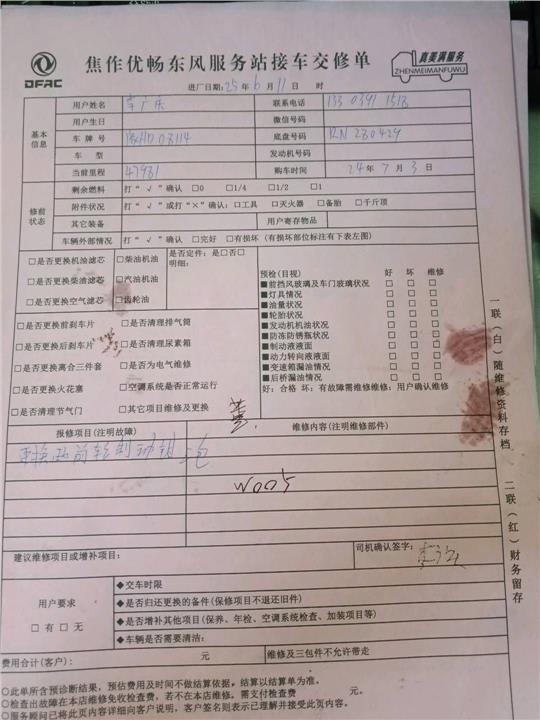 DFAC
焦作优畅东风服务站接车交修单
真美满服务
ZHENMEIMANFUWU
进厂日期:25年6月11日 时
基本信息
用户姓名 李广庆 联系电话 133 0391 1518
用户生日 微信号码
车牌号 豫HD08114 底盘号码 RN280429
车型 发动机号码
当前里程 47981 购车时间 24年7月3日
修前状态
剩余燃料 打“√”确认 □0 □1/4 □1/2 □1
附件状况 打“√”或打“×”确认:□工具 □灭火器 □备胎 □千斤顶
其它装备 用户寄存物品
车辆外部情况 打“√”确认 □完好 □有损坏(有损坏部位标注有下表左图)
□是否更换机油滤芯 □柴油机油
□是否更换柴滤滤芯 □汽油机油
□是否更换空气滤芯 □齿轮油
是否定件:是□否□
明细:
□是否更换前刹车片 □是否清理排气筒
□是否更换后刹车片 □是否清理尿素箱
□是否更换离合三件套 □是否为电气维修
□是否更换火花塞 □空调系统是否正常运行
□是否清理节气门 □其它项目维修及更换
预检(目视) 好 坏 维修
■前挡风玻璃及车门玻璃状况 □ □ □
■灯具情况 □ □ □
■油量状况 □ □ □
■轮胎状况 □ □ □
■发动机机油状况 □ □ □
■防冻防锈瓶状况 □ □ □
■制动液液面 □ □ □
■动力转向液液面 □ □ □
■变速箱漏油情况 □ □ □
■后桥漏油情况 □ □ □
好:合格 坏:有故障需维修维修:用户确认维修
报修项目(注明故障) 维修内容(注明维修部件)
更换两前轮制动钳总
W005
建议维修项目或增补项目:
司机确认签字:
用户要求
□有 □无
◆交车时限
◆是否归还更换的备件(保修项目不退还旧件)
◆是否增补其他项目(保养、年检、空调系统检查、加装项目等)
◆车辆是否需要清洁:
费用合计(客户): 元 维修及三包件不允许带走
○此单所含预诊断结果,预估费用及时间不做结算依据,结算以结算单为准。
○检查出故障在本店维修免收检查费,若不在本店维修,需支付检查费 元。
○服务顾问已将此页内容详细向客户说明,客户签名则表示已理解并接受此页内容。
一联(白)随维修资料存档
二联(红)财务留存